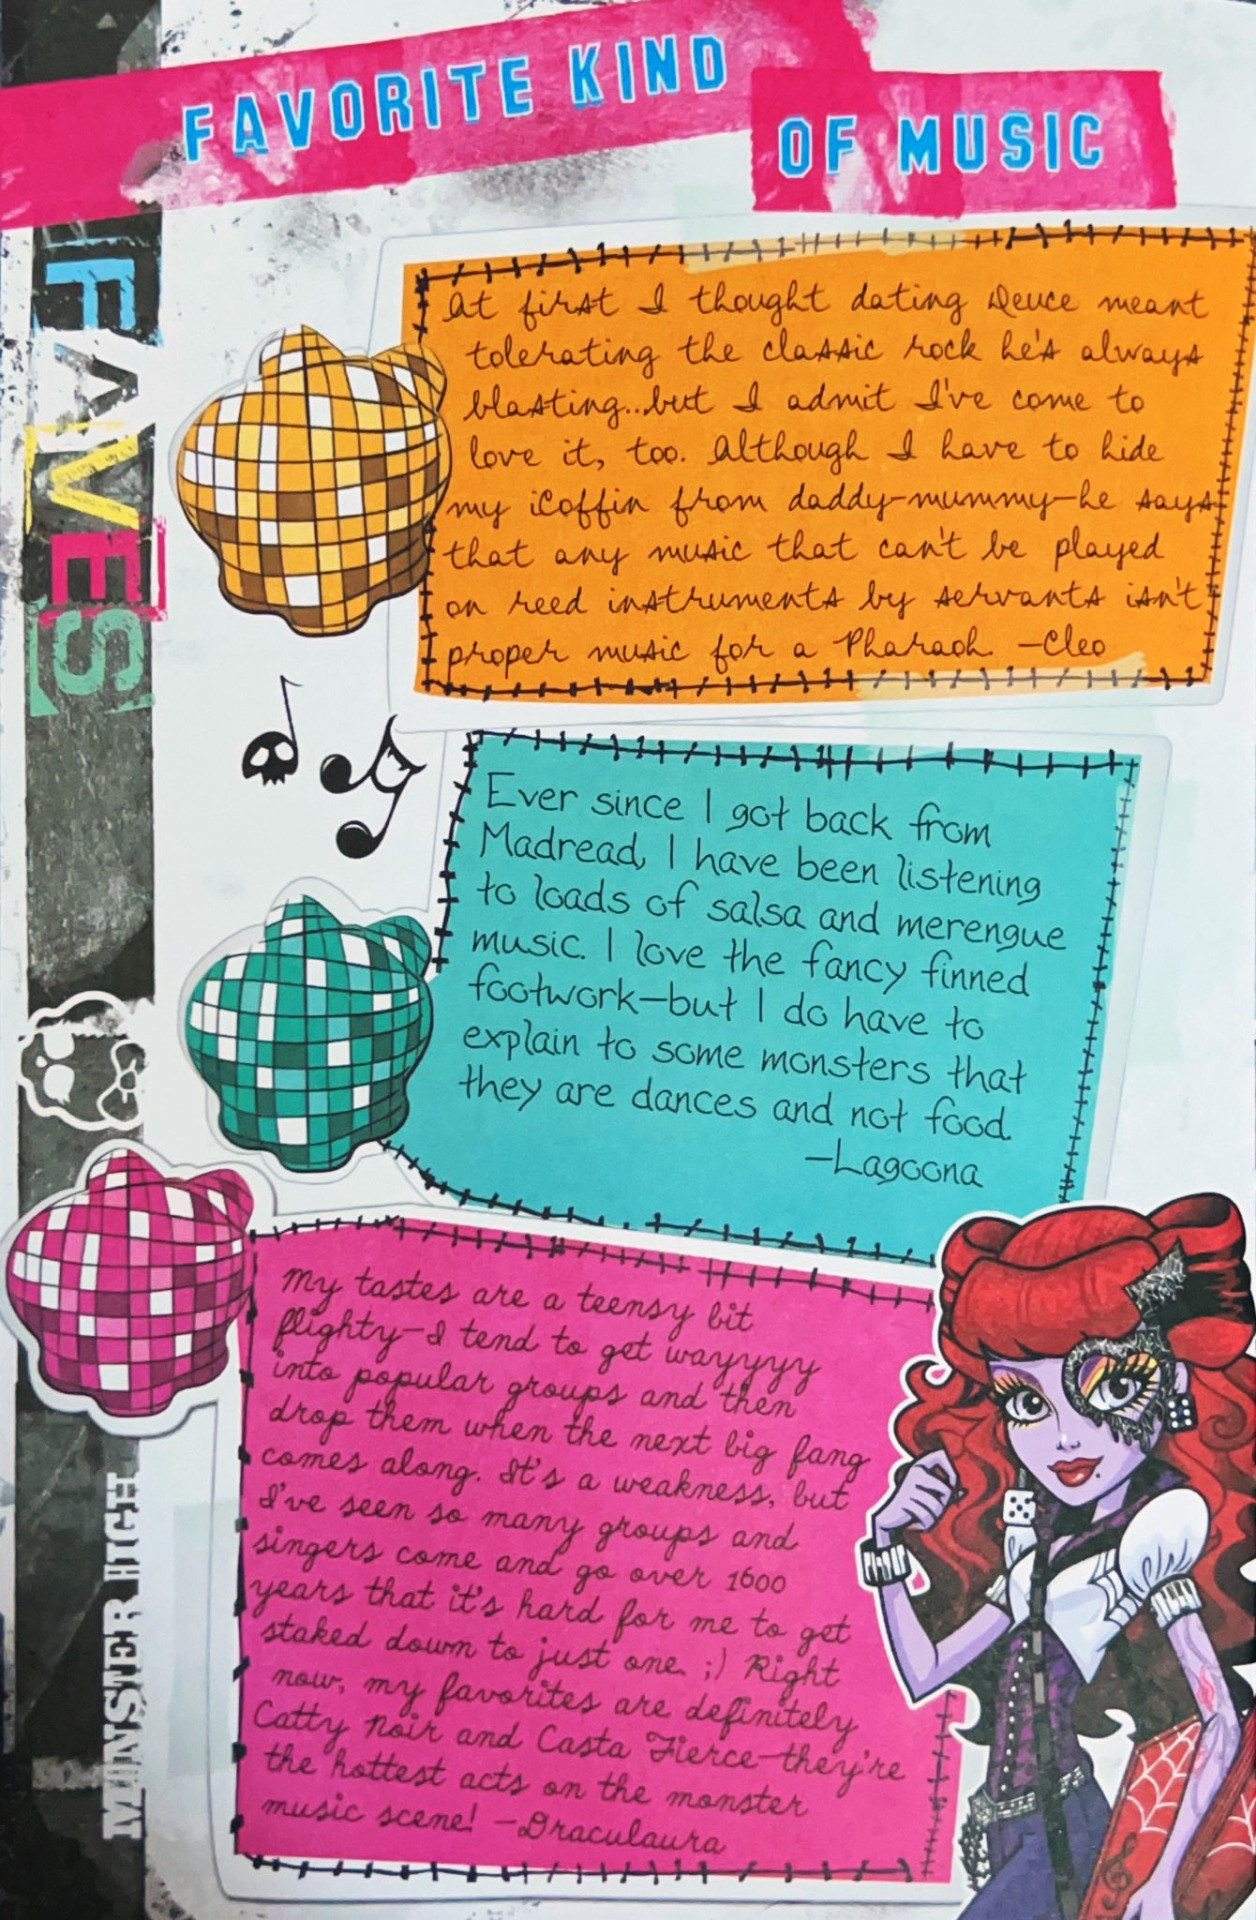 FAVORITE KIND
OF MUSIC
FAVES
At first I thought dating Deuce meant
tolerating the classic rock he's always
blasting...but I admit I've come to
love it, too. Although I have to hide
my iCoffin from daddy-mummy—he says
that any music that can't be played
on reed instruments by servants isn't
proper music for a Pharaoh. —Cleo
Ever since I got back from
Madread, I have been listening
to loads of salsa and merengue
music. I love the fancy finned
footwork—but I do have to
explain to some monsters that
they are dances and not food.
—Lagoona
My tastes are a teensy bit
flighty—I tend to get wayyyyy
into popular groups and then
drop them when the next big fang
comes along. It's a weakness, but
I've seen so many groups and
singers come and go over 1600
years that it's hard for me to get
staked down to just one. ;) Right
now, my favorites are definitely
Catty Noir and Casta Fierce—they're
the hottest acts on the monster
music scene! —Draculaura
MONSTER HIGH